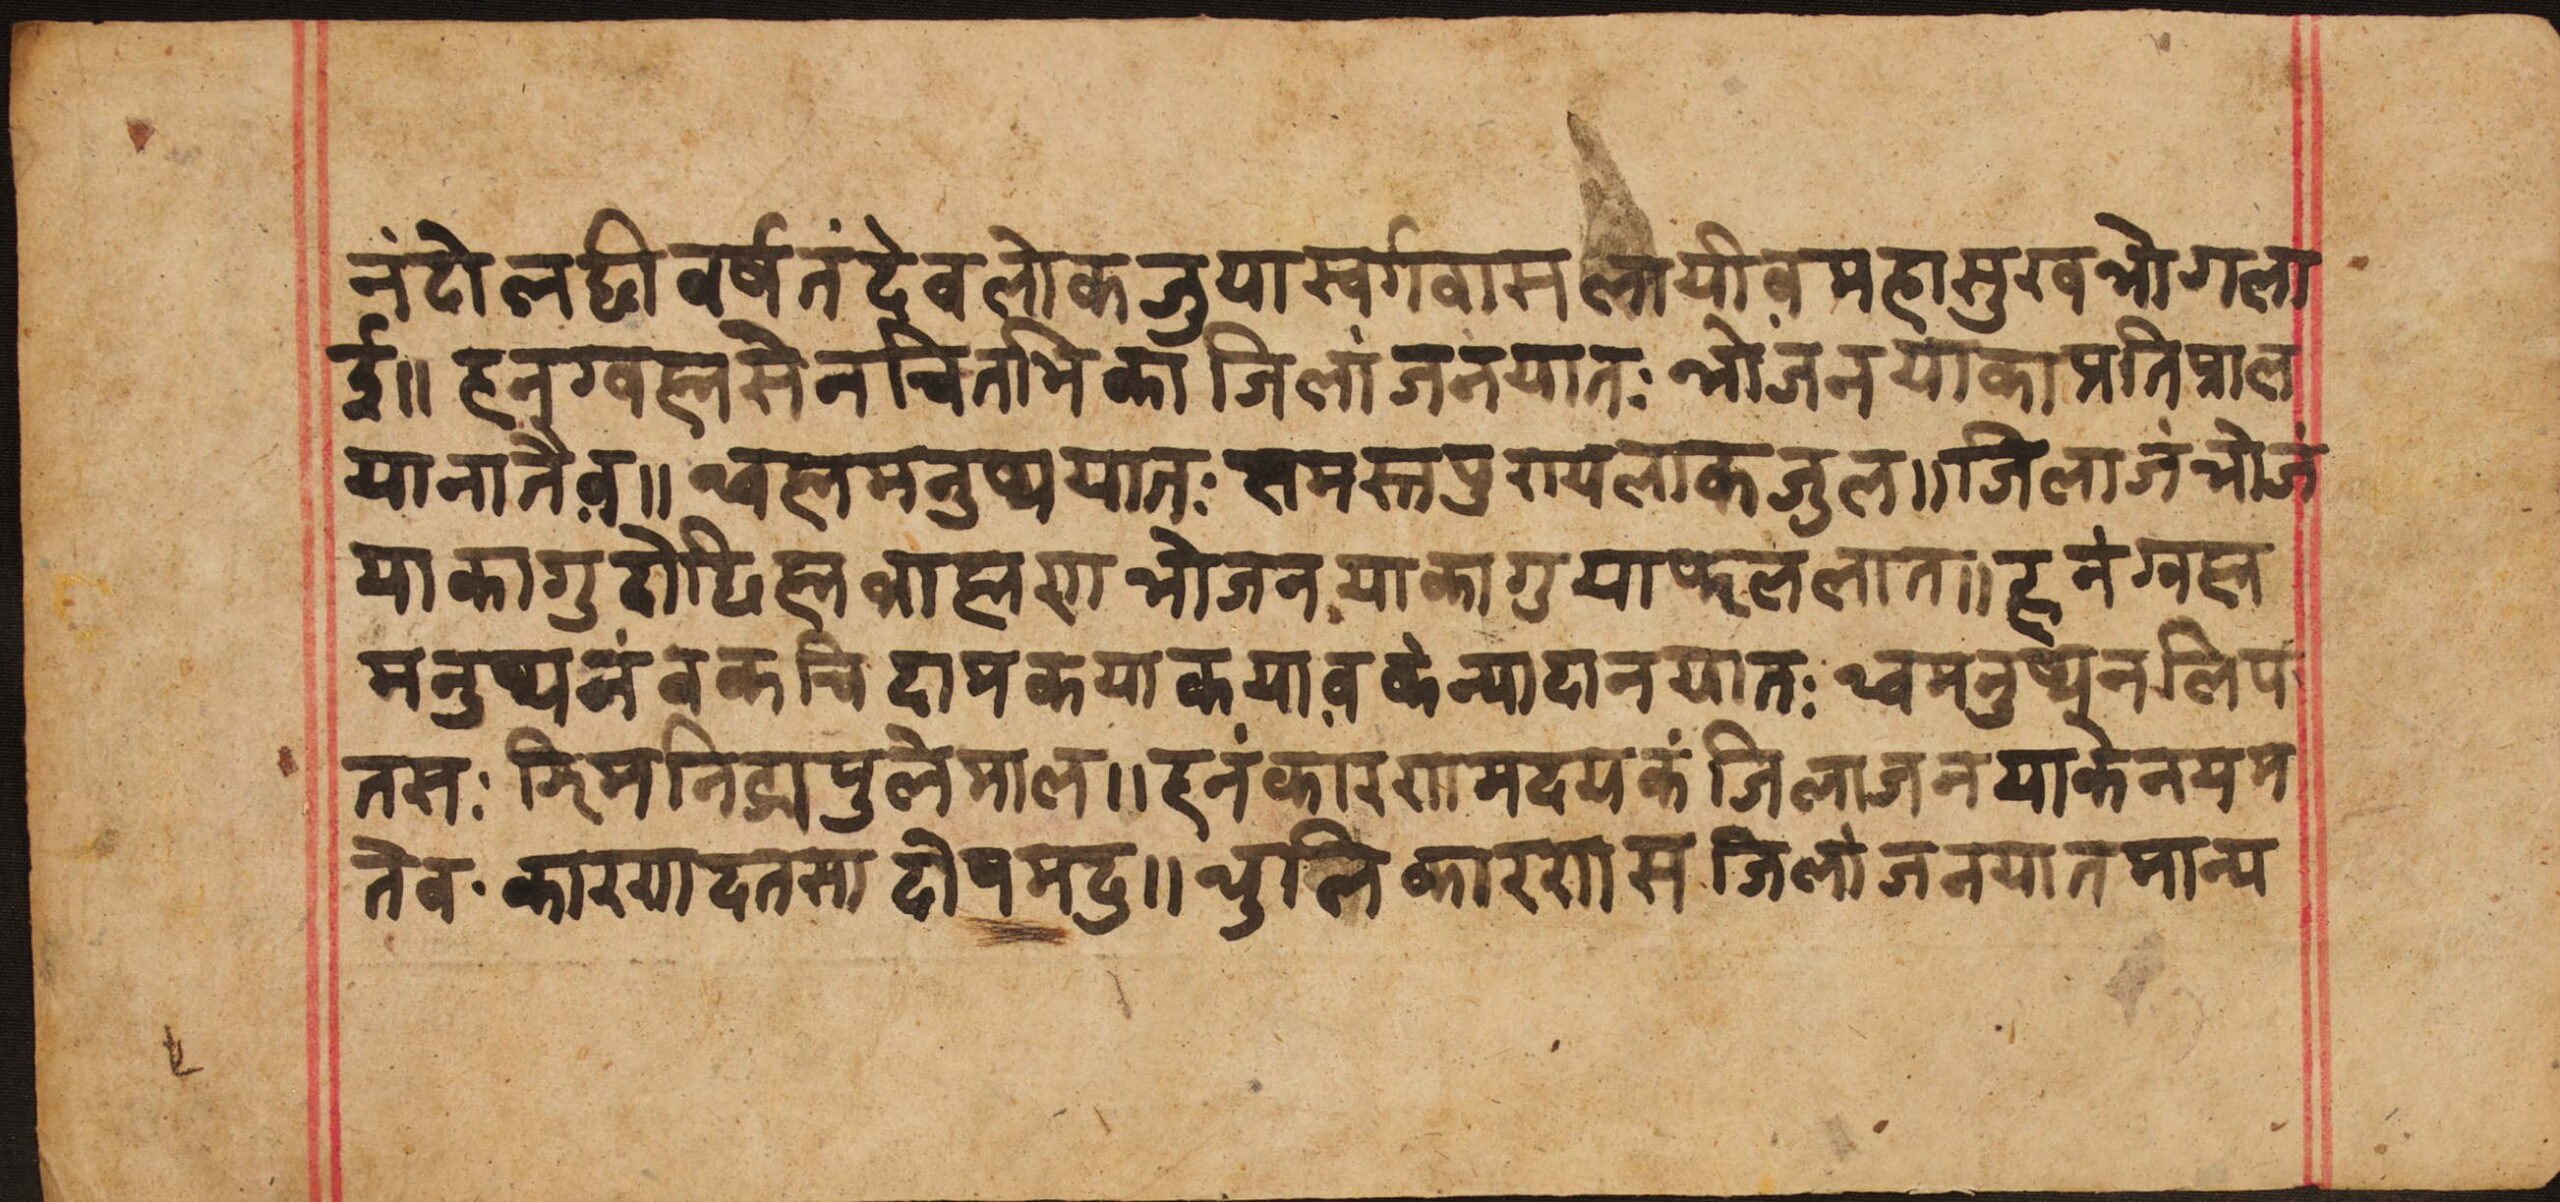 नंदोलछी वर्षतं देवलोकजुया स्वर्गवासलायीव़ महासुखभोगला
ई॥ हनग्वह्मसेन चितभिका जिलांजनयातः भोजनयाका प्रतिपाल
यानातैव़॥ थ्वह्ममनुष्ययातः समस्तपुरायलाकजुल॥ जिलाजंभोजं
याकागु दोछिह्म ब्राह्मरा भोजनयाकागुया फललात॥ हनंग्वह्म
मनुष्यनं वकचिदामकयाकयाव़ कंन्यादानयातः थ्वमनुष्यन लिप
तसः मिमनिद्रापुलेमाल॥ हनंकाररामदयकं जिलाजनयाकेनयम
तेव· कारयादतसा दोषमदु॥ थुलिकाररास जिलाजनयात मान्य